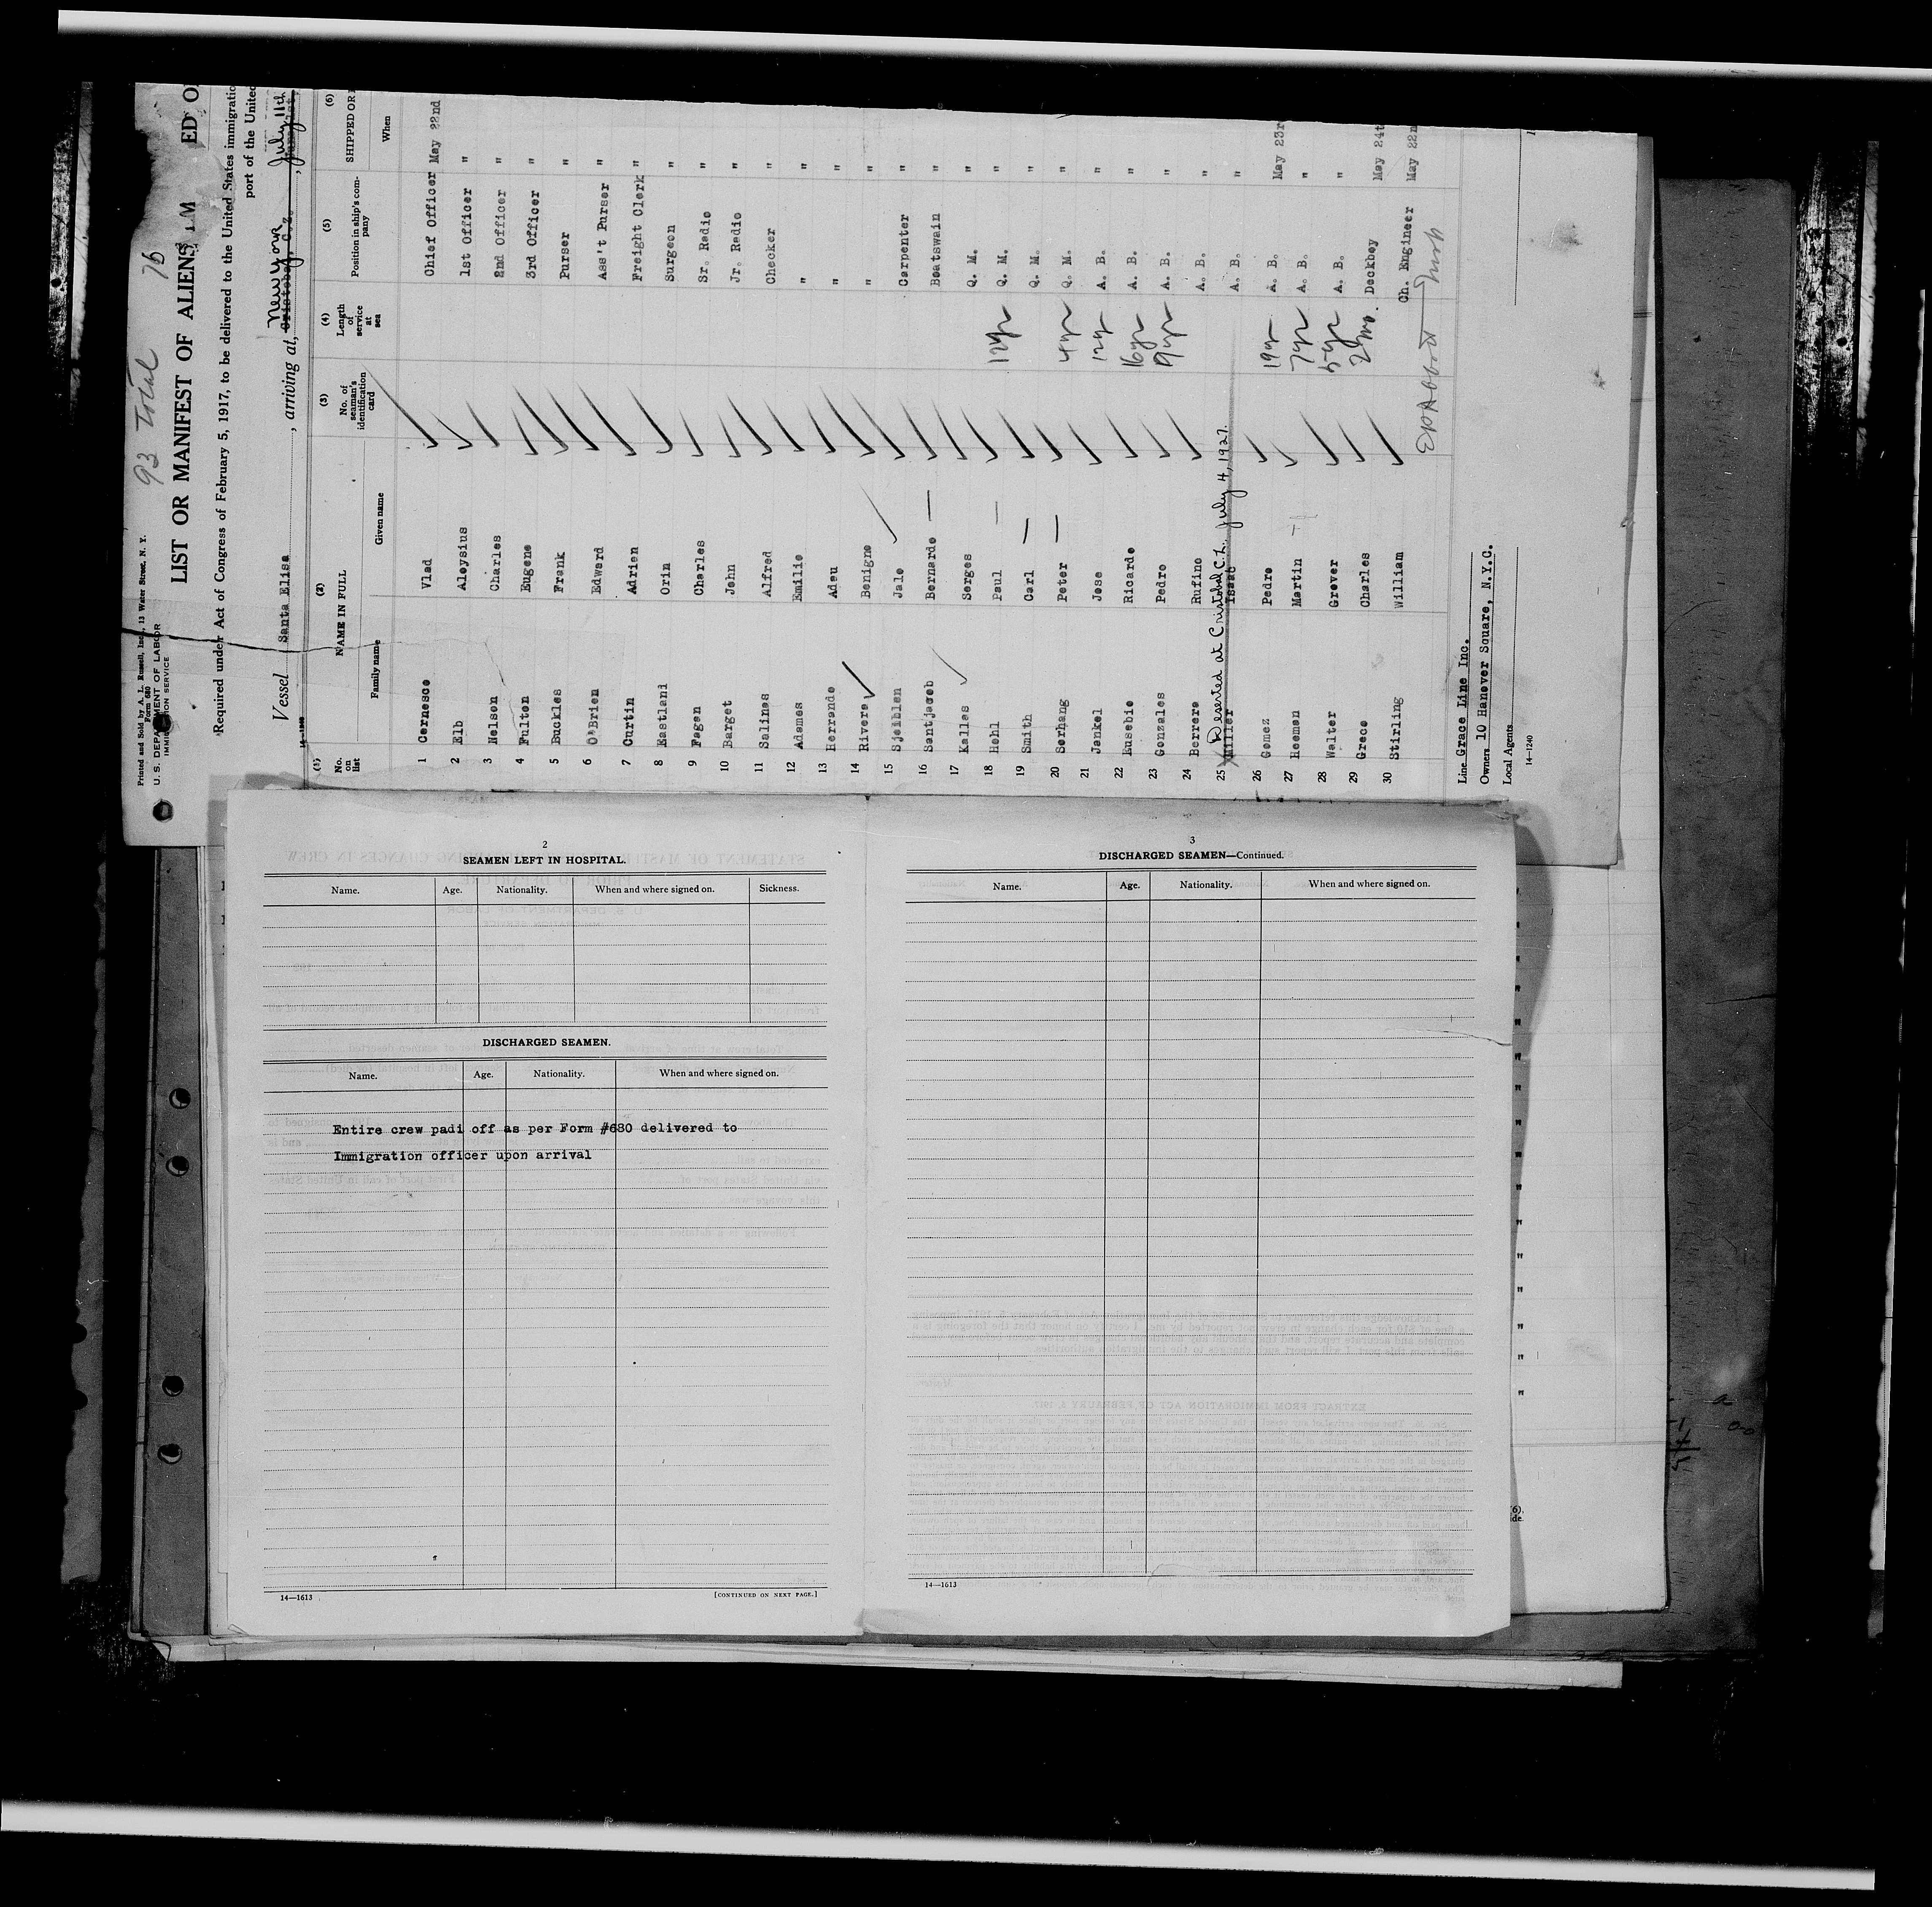 93 Total 76
Printed and Sold by A. L. Russell, Inc., 13 Water Street, N. Y.
Form 680
U. S. DEPARTMENT OF LABOR
IMMIGRATION SERVICE
LIST OR MANIFEST OF ALIENS
Required under Act of Congress of February 5, 1917, to be delivered to the United States immigratio
port of the United
Vessel Santa Elisa, arriving at, Cristobal, C.Z. New York, July 11th
(1) (2) (3) (4) (5) (6)
No. on list NAME IN FULL No. of seaman's identification card Length of service at sea Position in ship's company SHIPPED OR
Family name Given name When
1 Cernesco Vlad Chief Officer May 22nd
2 Elb Aloysius 1st Officer "
3 Nelson Charles 2nd Officer "
4 Fulton Eugene 3rd Officer "
5 Buckles Frank Purser "
6 O'Brien Edward Ass't Purser "
7 Curtin Adrien Freight Clerk "
8 Eastland Orin Surgeon "
9 Fagan Charles Sr. Radio "
10 Barget John Jr. Radio "
11 Salinas Alfred Checker "
12 Adames Emilio " "
13 Herrande Adau " "
14 Rivera Benigno " "
15 Jale Carpenter "
16 Santjacob Bernardo Boatswain "
17 Kallas Serges Q. M. "
18 Hohl Paul 12 yr Q. M. "
19 Smith Carl Q. M. "
20 Sorhang Peter 4 yr Q. M. "
21 Jankel Jose 12 yr A. B. "
22 Eusebio Ricardo 16 yr A. B. "
23 Gonzales Pedro 9 yr A. B. "
24 Berrera Rufino A. B. "
25 Miller Isaac A. B. "
Deserted at Cristobal C.Z. July 4, 1927.
26 Gomez Pedro 19 yr A. B. May 23r
27 Heeman Martin 7 yr A. B. "
28 Walter Grover 5 yr A. B. "
29 Grece Charles 2 mo. Deckboy May 24t
30 Stirling William Ch. Engineer May 22n
Line Grace Line Inc.
Owners 10 Hanover Square, N.Y.C.
Local Agents
14—1240
2
SEAMEN LEFT IN HOSPITAL.
Name. Age. Nationality. When and where signed on. Sickness.
DISCHARGED SEAMEN.
Name. Age. Nationality. When and where signed on.
Entire crew padi off as per Form #680 delivered to
Immigration officer upon arrival
14—1613 [CONTINUED ON NEXT PAGE.]
3
DISCHARGED SEAMEN—Continued.
Name. Age. Nationality. When and where signed on.
14—1613